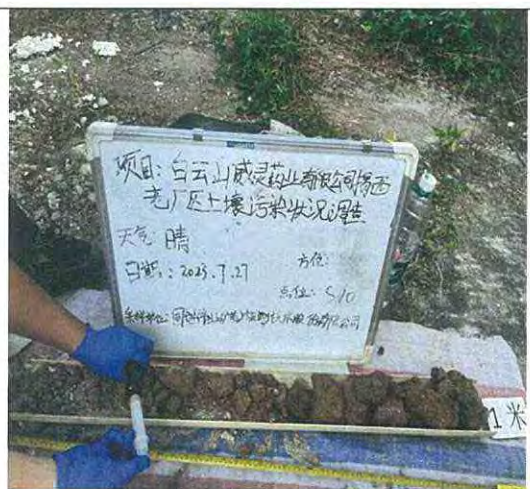 项目: 白云山威灵药业有限公司揭西
老厂区土壤污染状况调查
天气: 晴
日期: 2023.7.27
方位:
点位: S10
采样单位:
有限公司
1米